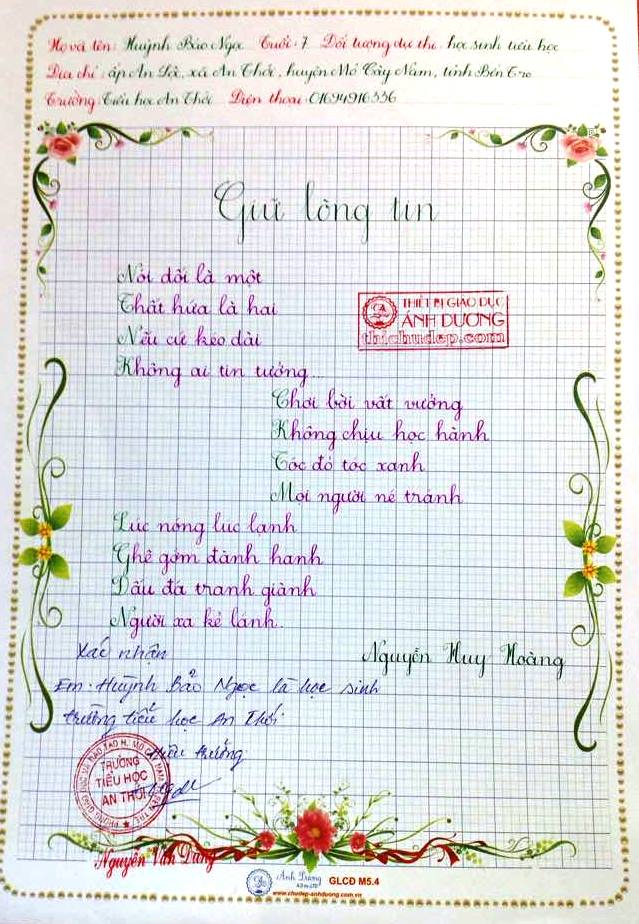 Họ và tên: Huỳnh Bảo Ngọc Tuổi: 7 Đối tượng dự thi: học sinh tiểu học
Địa chỉ: ấp An Lộc, xã An Thới, huyện Mỏ Cày Nam, tỉnh Bến Tre
Trường: Tiểu học An Thới Điện thoại: 01694916336
Giữ lòng tin
Nói dối là một
Thất hứa là hai
Nếu cứ kéo dài
Không ai tin tưởng...
THIẾT BỊ GIÁO DỤC
ÁNH DƯƠNG
thichudep.com
Chơi bời vất vưởng
Không chịu học hành
Tóc đỏ tóc xanh
Mọi người né tránh
Lúc nóng lúc lạnh
Ghê gớm đành hanh
Dấu đá tranh giành
Người xa kẻ lánh.
Nguyễn Huy Hoàng
Xác nhận
Em: Huỳnh Bảo Ngọc là học sinh
trường tiểu học An Thới.
Hiệu trưởng
TRƯỜNG
TIỂU HỌC
AN THỚI
Nguyễn Văn Dũng
Ánh Dương
GLCĐ M5.4
www.chudep-anhduong.com.vn